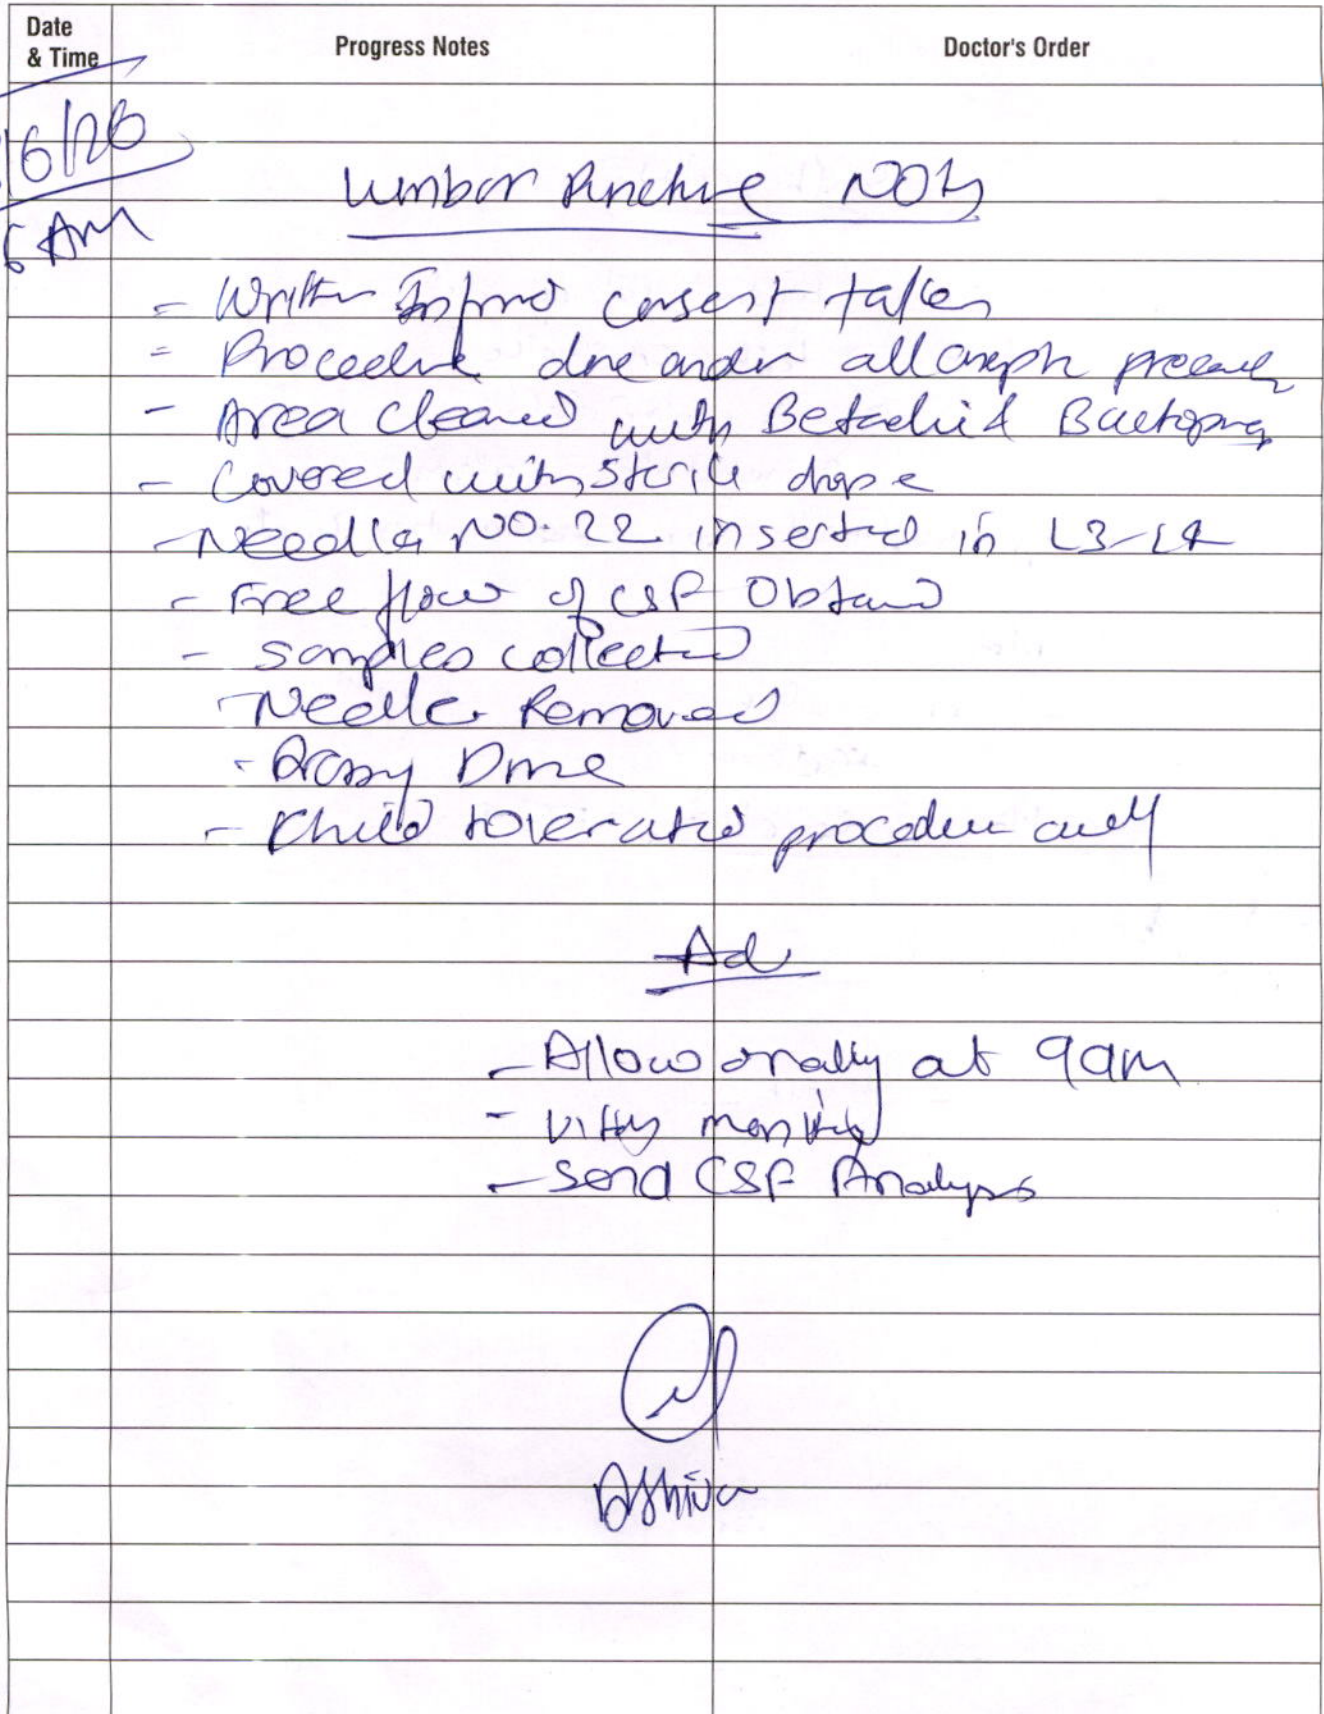 Date & Time Progress Notes Doctor's Order
6/26
6 AM
Lumbar Puncture Note
- Written Informed consent taken
- Procedure done under all aseptic
- Area cleaned with Betadine &
- Covered with sterile drape
- Needle NO. 22 inserted in L3-L4
- Free flow of CSF Obtained
- samples collected
- Needle Removed
- Done
- Child tolerated procedure well
Ad
- Allow orally at 9am
- Vitals monitoring
- Send CSF Analysis